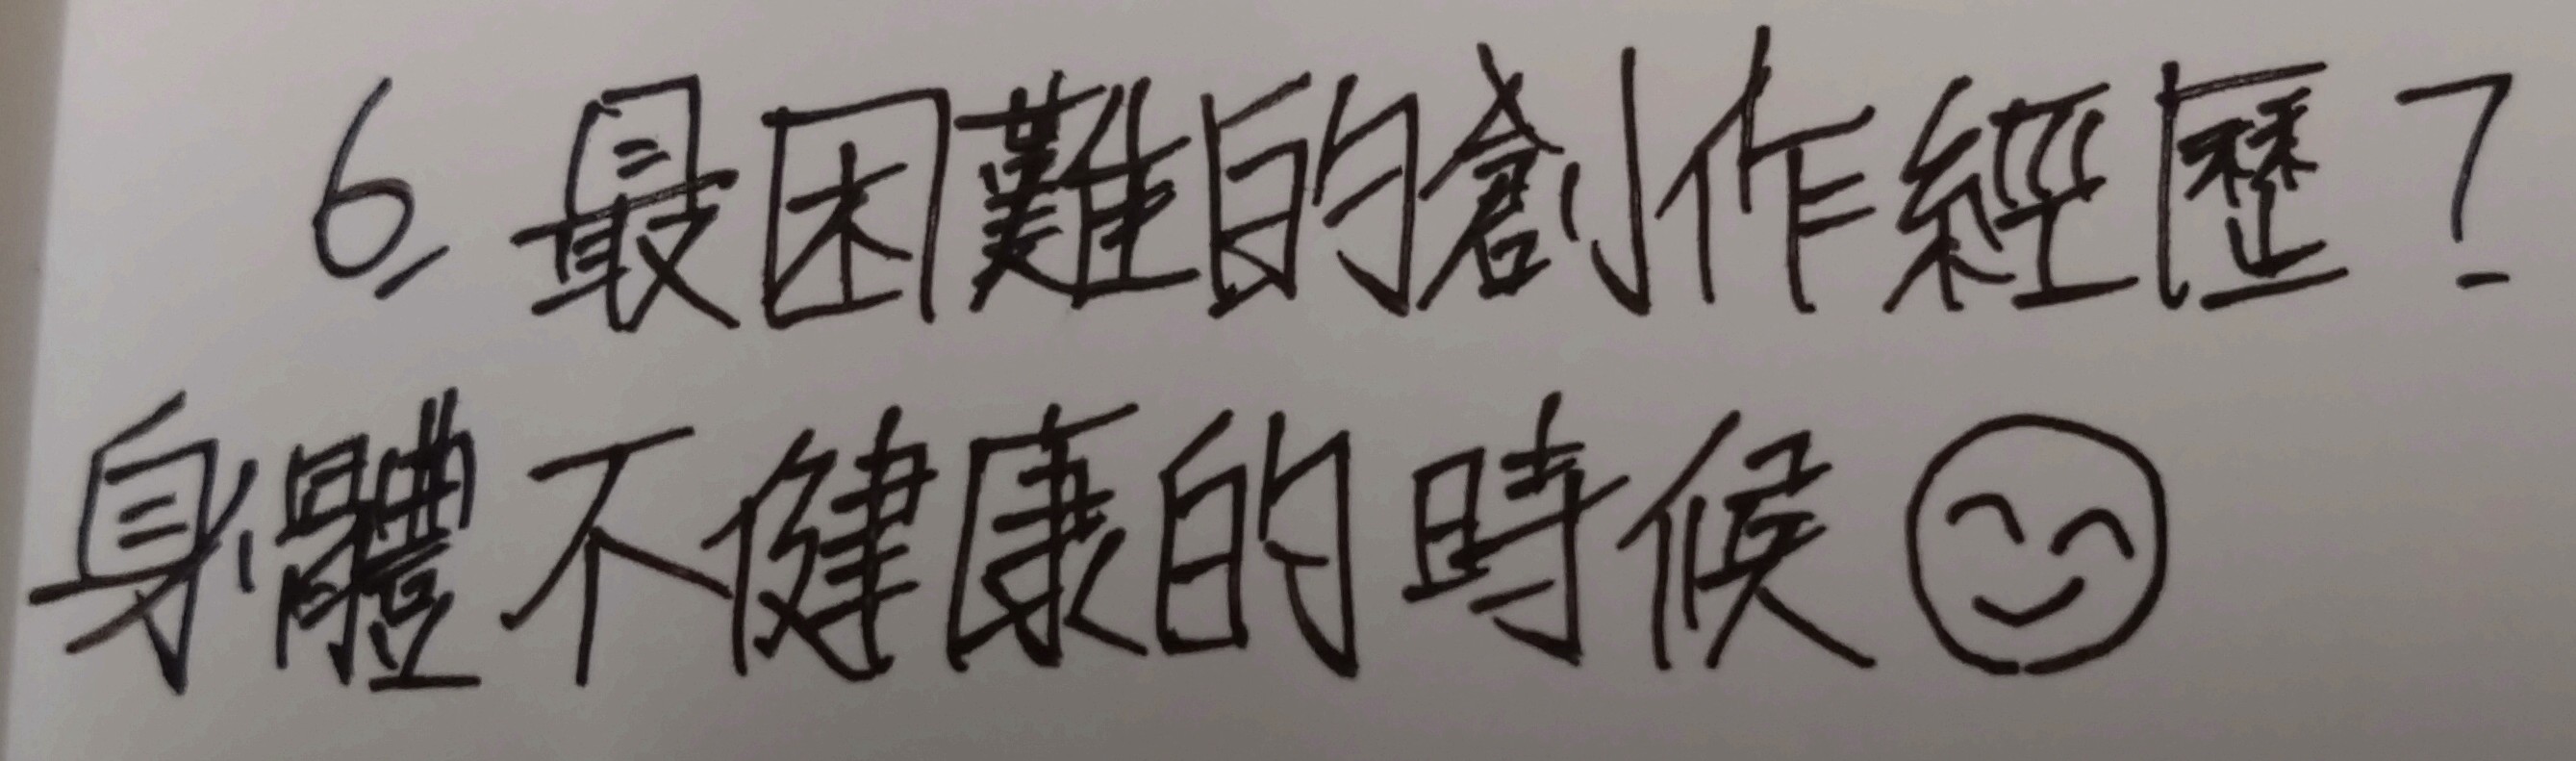 6. 最困難的創作經歷？
身體不健康的時候